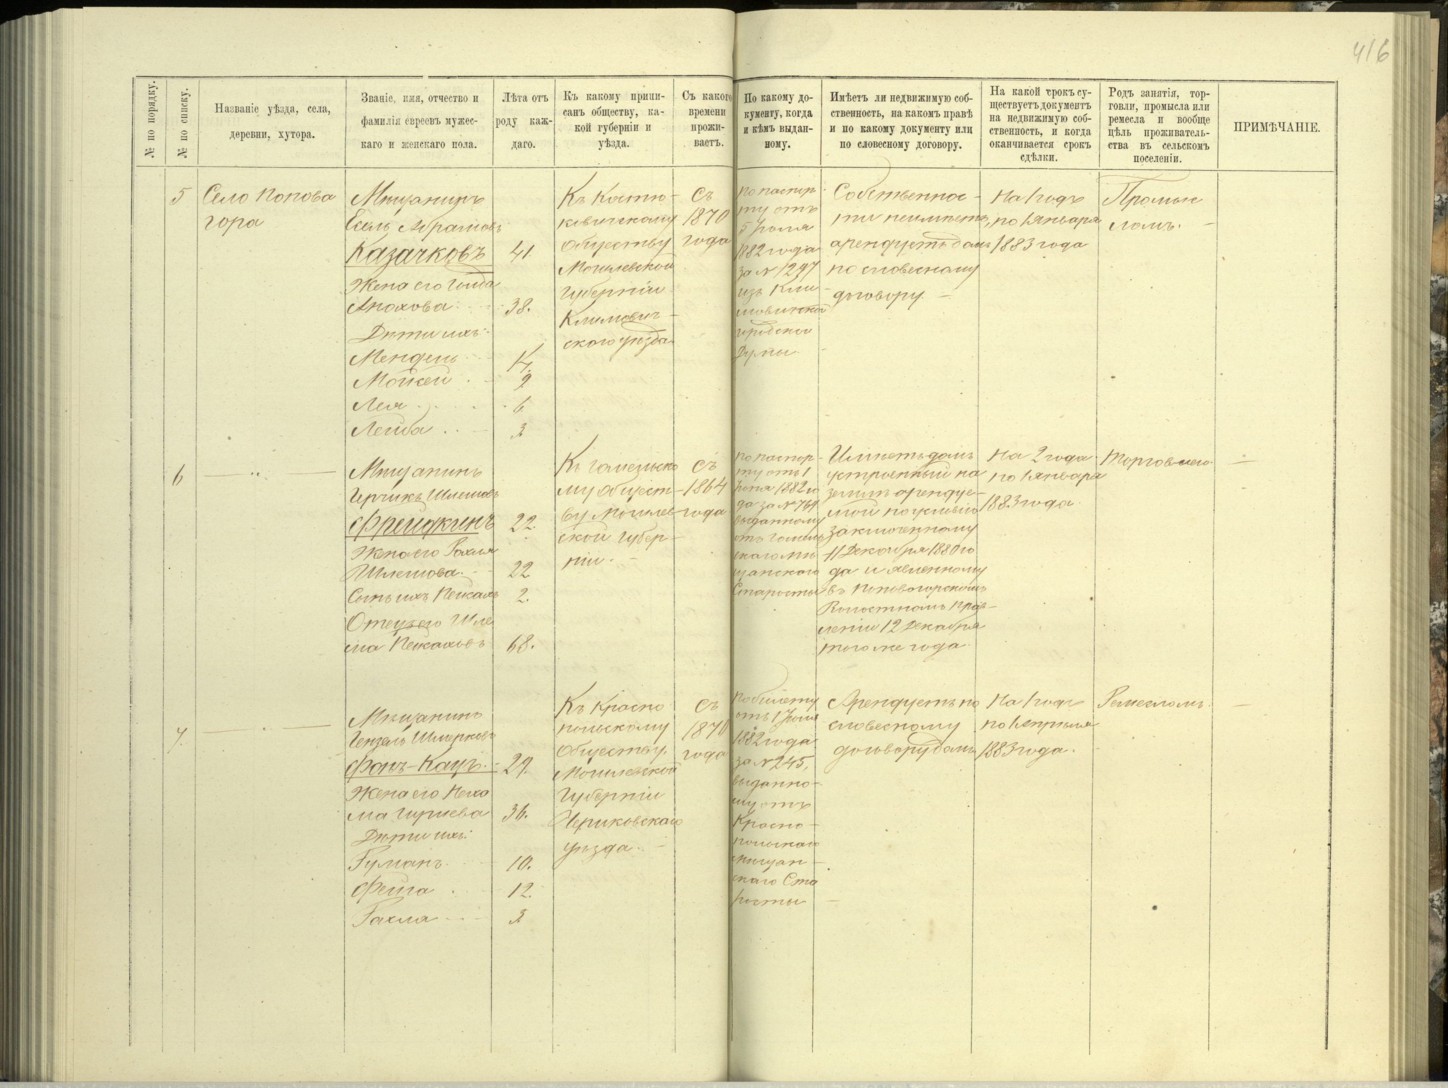 416
№ по порядку.
№ по списку.
Названіе уѣзда, села,
деревни, хутора.
Званіе, имя, отчество и
фамилія евреевъ мужес-
каго и женскаго пола.
Лѣта отъ
роду каж-
даго.
Къ какому припи-
санъ обществу, ка-
кой губерніи и
уѣзда.
Съ какого
времени
прожи-
ваетъ.
По какому до-
кументу, когда
и кѣмъ выдан-
ному.
Имѣетъ ли недвижимую соб-
ственность, на какомъ правѣ
и по какому документу или
по словесному договору.
На какой срокъ су-
ществуетъ документъ
на недвижимую соб-
ственность, и когда
оканчивается срокъ
сдѣлки.
Родъ занятія, тор-
говли, промысла или
ремесла и вообще
цѣль проживатель-
ства въ сельскомъ
поселеніи.
ПРИМѢЧАНІЕ.
5
Село Попова
гора
Мѣщанинъ
Абрамовъ
Казачковъ 41
Жена его
38.
Дѣти ихъ:
Мендель 14.
Мойсей 9
Лея 6
Лейба 3
Къ Костю-
ковичскому
обществу
Могилевской
губерніи
Климович-
скаго уѣзда
Съ
1870
года
По паспор-
ту отъ
5 Іюля
1882 года
за № 1297
изъ Кли-
мовичской
городской
Думы
Собственнос-
ти неимѣетъ,
арендуетъ домъ
по словесному
договору
На 1 годъ
по 1 января
1883 года
Промыс-
ломъ.
6
Мѣщанинъ
Гиршикъ Шлемовъ
Фрейдкинъ 22.
Жена его Рахля
Шлемова 22
Сынъ ихъ Пейсахъ 2.
Отецъ его Шле-
ма Пейсаховъ 68.
Къ Гомельско-
му общест-
ву Могилев-
ской губер-
ніи
Съ
1864
года
По паспор-
ту отъ 1
1882 го
да за № 769
выданному
отъ Гомель
скаго мѣ
щанскаго
Старосты
Имѣетъ домъ
устроенный на
землѣ арендуе-
мой по условію
заключенному
11 Декабря 1880 го
да и явленному
въ Поповогорскомъ
Волостномъ Прав-
леніи 12 Декабря
того же года
На 2 года
по 1 января
1883 года
Торговлею
7
Мѣщанинъ
Фонъ-Кацъ 29.
Жена его Неха
ма 36.
Дѣти ихъ:
Гуманъ 10.
Фейга 12
Рахля 3
Къ Красно
польскому
обществу
Могилевской
губерніи
Чериковскаго
уѣзда
Съ
1870
года
По билету
отъ 1
1882 года
за № 245,
выданно-
му отъ
Красно-
польскаго
мѣщан-
скаго Ста
росты
Арендуетъ по
словесному
договору домъ
На 1 годъ
по 1 апрѣля
1883 года.
Ремесломъ